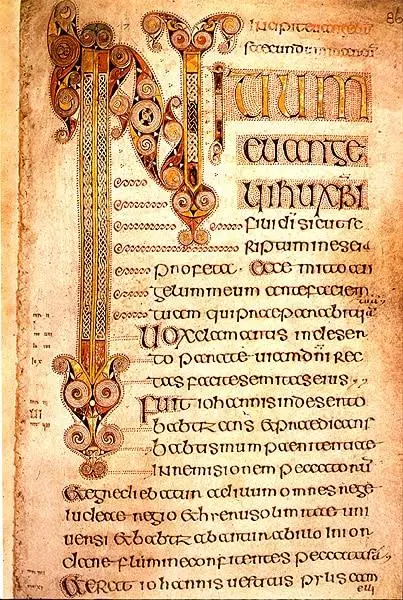 86
secundum
INITIUM
euange
lii ihu xpi
filii di sicut sc
riptum in esaia
profeta. Ecce mitto an
gelum meum ante faciem
tuam qui
Uox clamantis in deser
to parate uiam dni rec
tas facite semitas eius
Fuit iohannis in deserto
babtizans et praedicans
babtismum paenitentiae
in remisionem peccatorū
Et egrediebatur ad illum omnes
iudeae regio et hierusolimitae uni
uersi et babtizabantur ab illo in ior
dane flumine confitentes peccata sua
Et erat iohannis uestitus pylis cam
eli